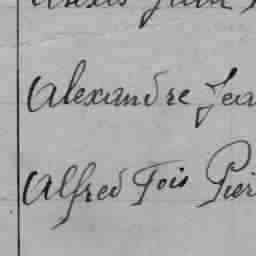 Alexis Jean
Alexandre Jea
Alfred Fois Pier